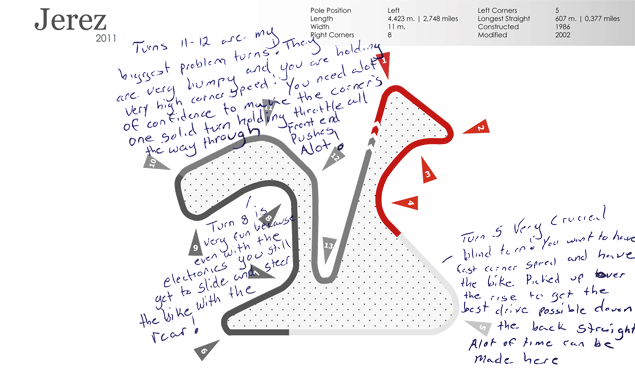 Jerez
2011
Pole Position Left
Length 4.423 m. | 2.748 miles
Width 11 m.
Right Corners 8
Left Corners 5
Longest Straight 607 m. | 0,377 miles
Constructed 1986
Modified 2002
Turns 11-12 are my
biggest problem turns. They
are very bumpy and you are holding
very high corner speed! You need alot
of confidence to make the corner's
one solid turn holding throttle all
the way through
Front end
Pushes
Alot!
1
2
3
4
5
6
8
9
10
12
13
Turn 8 is
very fun because
even with the
electronics you still
get to slide and steer
the bike with the
rear!
Turn 5 Very Crucial
blind turn! You want to have
fast corner speed and have
the bike Picked up over
the rise to get the
best drive possible down
the back straight
Alot of time can be
made here